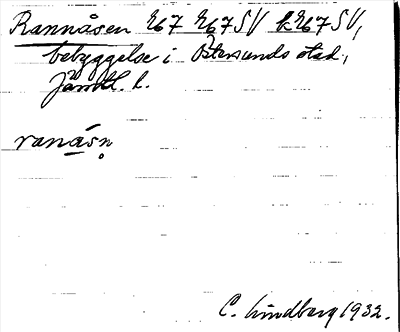 Rannåsen 767 767SV k767SV,
bebyggelse i Östersunds stad,
Jämtl. l.
ranåsn̥
C. Lindberg 1932.